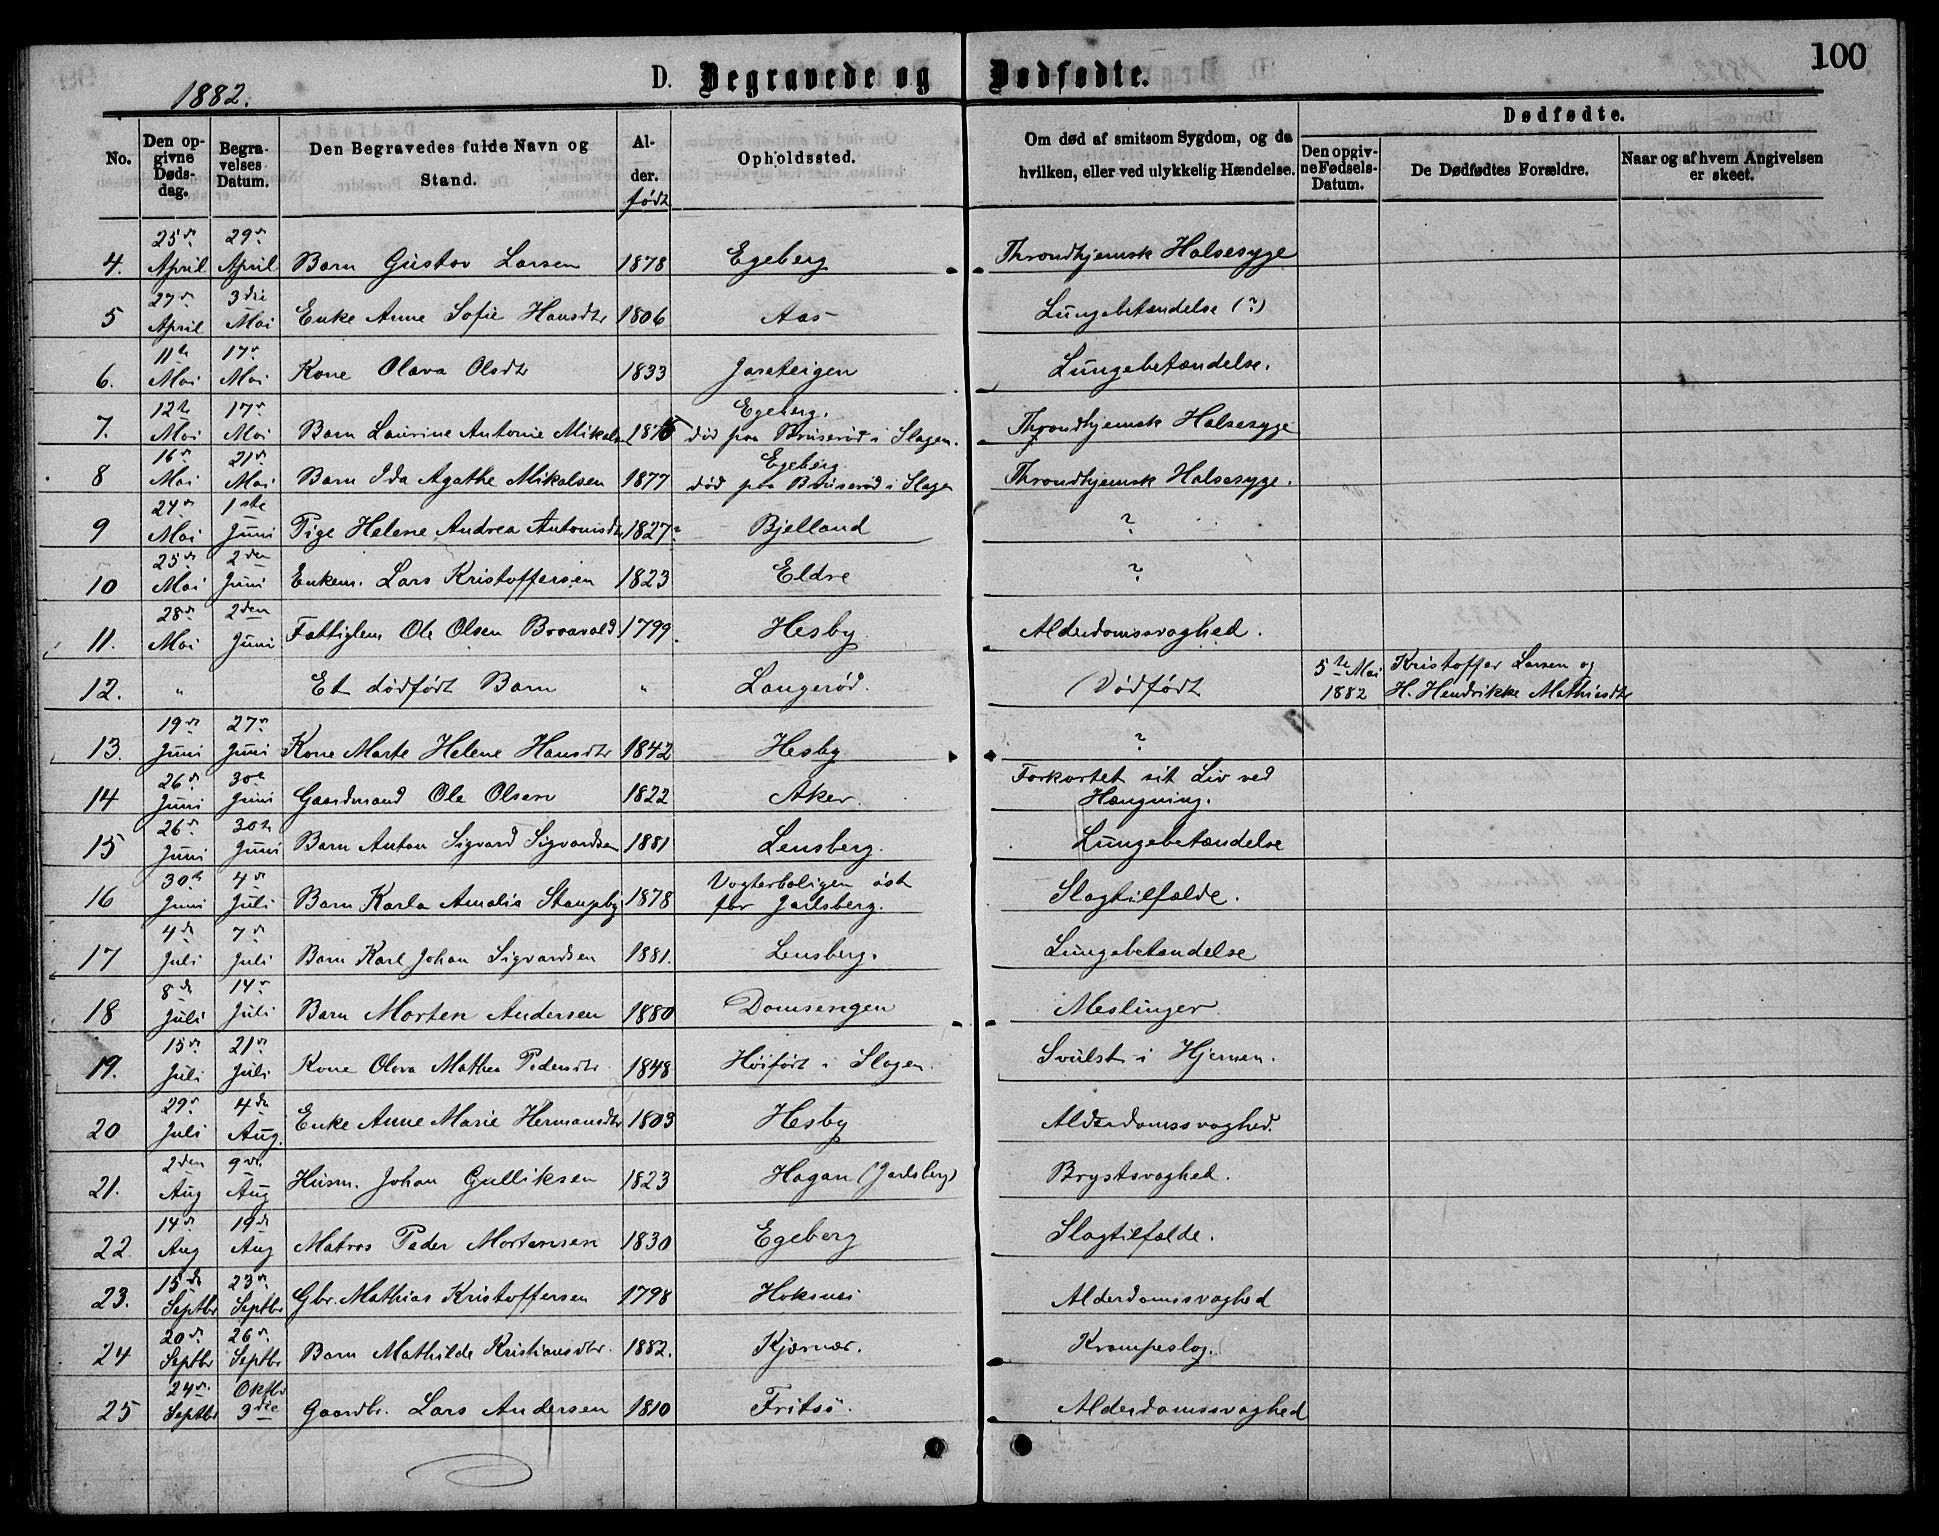 100
1882.
D. Begravede og Dødfødte.
No.
Den opgivne Dødsdag.
Begravelses Datum.
Den Begravedes fulde Navn og Stand.
Alder. født
Opholdssted.
Om død af smitsom Sygdom, og da hvilken, eller ved ulykkelig Hændelse.
Dødfødte.
Den opgivne Fødsels-Datum.
De Dødfødtes Forældre.
Naar og af hvem Angivelsen er skeet.
4. 25de April 29de April Barn Gustav Larsen 1878 Egeberg Throndhjemsk Halsesyge
5 27de April 3die Mai Enke Anne Sofie Hansdtr 1806 Aas Lungebetændelse (?)
6. 11te Mai 17de Mai Kone Olava Olsdtr 1833 Jareteigen Lungebetændelse.
7. 12te Mai 17de Mai Barn Laurine Antonie Mikals. 1875 Egeberg. død paa Bruserød i Slagen. Throndhjemsk Halsesyge
8 16de Mai 21de Mai Barn Ida Agathe Mikalsen 1877 Egeberg død paa Bruserød i Slagen Throndhjemsk Halsesyge.
9 24de Mai 1ste Juni Pige Helene Andrea Antonisdtr 1827? Bjelland ?
10 25de Mai 2den Juni Enkem. Lars Kristoffersen 1823 Eldre ?
11. 28de Mai 2den Juni Fattiglem Ole Olsen Braavold 1799. Hesby Alderdomssvaghed.
12. " Et dødfødt Barn " Langerød. Dødfødt 5te Mai 1882 Kristoffer Larsen og H. Hendrikke Mathiasdtr
13. 19de Juni 27de Juni Kone Marte Helene Hansdtr 1842 Hesby ?
14 26de Juni 30te Juni Gaardmand Ole Olsen 1822 Aker. Forkortet sit Liv ved Hængning.
15 26de Juni 30te Juni Barn Anton Sigvard Sigvardsen 1881 Lensberg. Lungebetændelse
16 30te Juni 4de Juli Barn Karla Amalia Stangeby 1878 Vogterboligen øst for Jarlsberg. Slagtilfælde.
17 4de Juli 7de Juli Barn Karl Johan Sigvardsen 1881. Lensberg. Lungebetændelse
18 8de Juli 14de Juli Barn Morten Andersen 1880 Domsengen Meslinger.
19. 15de Juli 21de Juli Kone Olava Mathea Pedersdtr 1848 Høiført i Slagen. Svulst i Hjernen.
20 29de Juli 4de Aug. Enke Anne Marie Hermansdtr 1803 Hesby Alderdomssvaghed.
21. 2den Aug 9de Aug Husm. Johan Gulliksen 1823 Hagan (Jarlsberg) Brystsvaghed.
22. 14de Aug 19de Aug Matros Peder Mortensen 1830 Egeberg Slagtilfælde.
23. 15de Septbr 23de Septbr Gbr. Mathias Kristoffersen 1798 Hoksnes Alderdomssvaghed
24 20de Septbr 26de Septbr Barn Mathilde Kristiansdtr. 1882. Kjærnær. Krampeslag.
25 24de Septbr Oktbr 3die Gaardbr. Lars Andersen 1810 Fritsø. Alderdomssvaghed